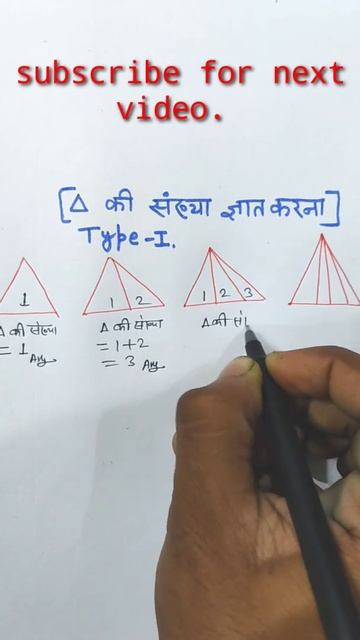 subscribe for next
video.
[Δ की संख्या ज्ञात करना]
Type-I.
1
1 2
1 2 3
Δ की संख्या
= 1 Ans
Δ की संख्या
= 1+2
= 3 Ans
Δ की सं